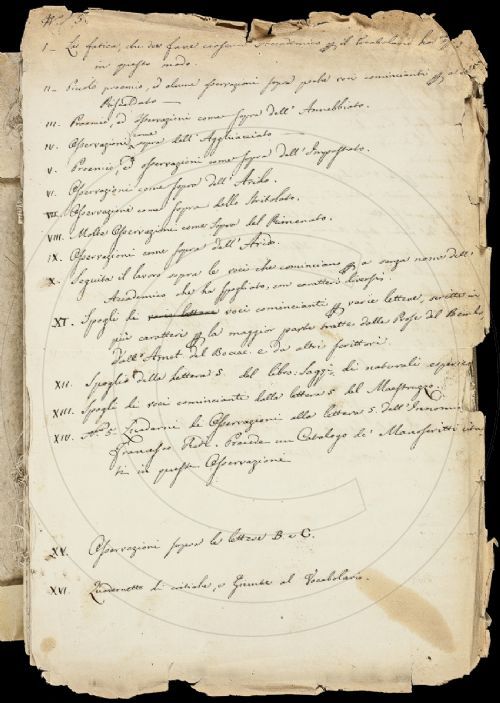 I – La fatica, che dee fare ciascun Accademico il Vocabolario ha
in questo modo.
II – Piccolo proemio, ed alcune osservazioni sopra voci comincianti
Riscaldato –
III. Proemio, ed osservazioni come sopra dell'Annebbiato.
IV. Osservazioni come sopra dell'Agghiacciato
V. Proemio, ed osservazioni come sopra dell'Impastato.
VI. Osservazioni come sopra dell'Arido.
VII. Osservazioni come sopra dello Stritolato.
VIII. Molte Osservazioni come sopra del Rimenato.
IX. Osservazioni come sopra dell'Arido.
X. Seguita il lavoro sopra le voci che cominciano p a senza nome dell'
Accademico che ha spogliato, con caratteri diversi.
XI. Spogli di varie lettere voci comincianti p varie lettere, scritte in
più caratteri p la maggior parte tratte dalle Prose del Bembo
dall'Amet. del Bocac. e da altri scrittori.
XII. Spoglio della lettera S. del libro: Sagg: di naturali esperienze
XIII. Spogli di voci comincianti dalla lettera S. del Maestruzzo.
XIV. Quaderni di Osservazioni alla lettera S. dell'Innominato
Francesco Redi. Precede un Catalogo de' Manoscritti cita
ti in queste Osservazioni
XV. Osservazioni sopra le lettere B. e C.
XVI. Quadernetto di critiche, e Giunte al Vocabolario.